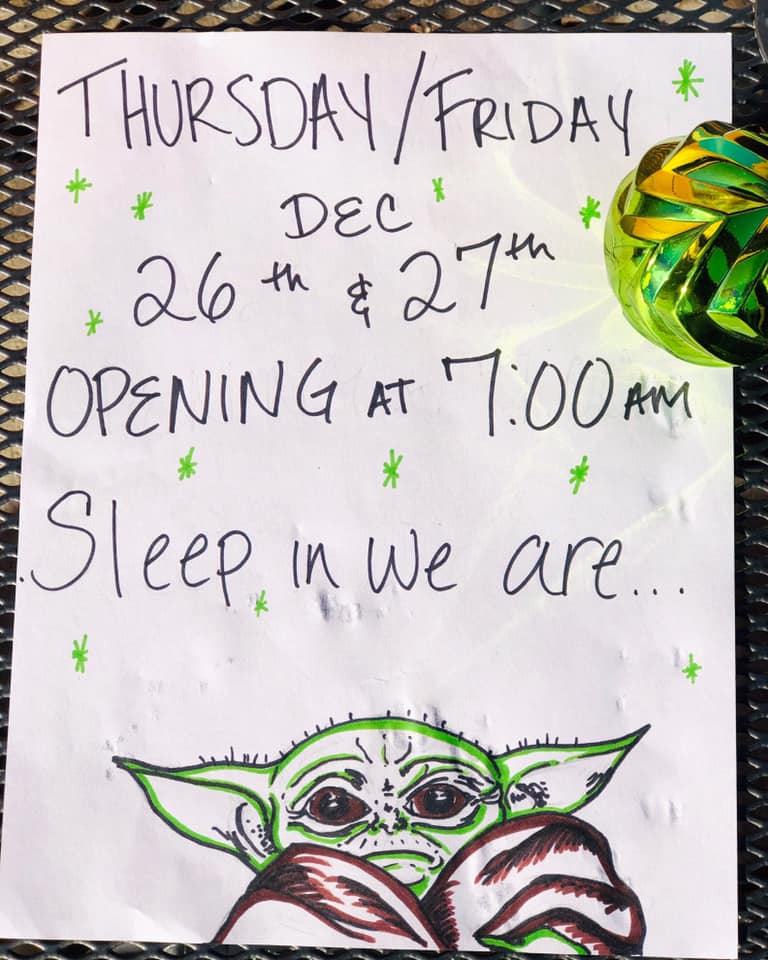 THURSDAY/FRIDAY
DEC
26th & 27th
OPENING AT 7:00 AM
Sleep in we are...